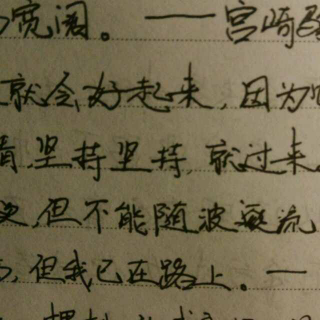 宽阔。——宫崎
就会好起来,因为
坚持坚持,就过来
但不能随波逐流
,但我已在路上。—